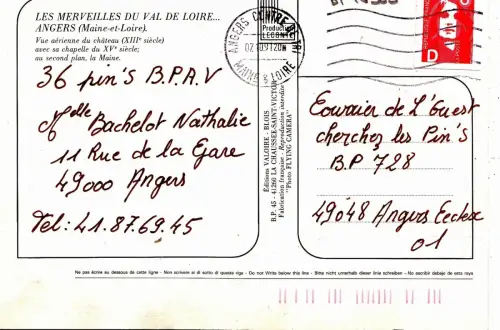 LES MERVEILLES DU VAL DE LOIRE...
ANGERS (Maine-et-Loire).
Vue aérienne du château (XIIIe siècle)
avec sa chapelle du XVe siècle;
au second plan, la Maine.
36 pin's B.P.A.V
Melle Bachelot Nathalie
11 Rue de la Gare
49000 Angers
Tel: 41.87.69.45
Editions VALOIRE - BLOIS
B.P. 45 - 41260 LA CHAUSSÉE-SAINT-VICTOR
Fabrication française - Reproduction interdite
"Photo FLYING CAMERA"
Product
LECONTE
ANGERS CENTRE DE TRI
MAINE & LOIRE
D
Courrier de L'Ouest
cherchez les Pin's
B.P 728
49048 Angers Cedex
01
Ne pas écrire au dessous de cette ligne - Non scrivere si di sotto di questa riga - Do not Write below this line - Bitte nicht unterhalb dieser linie schreiben - No escribir debajo de esta raya